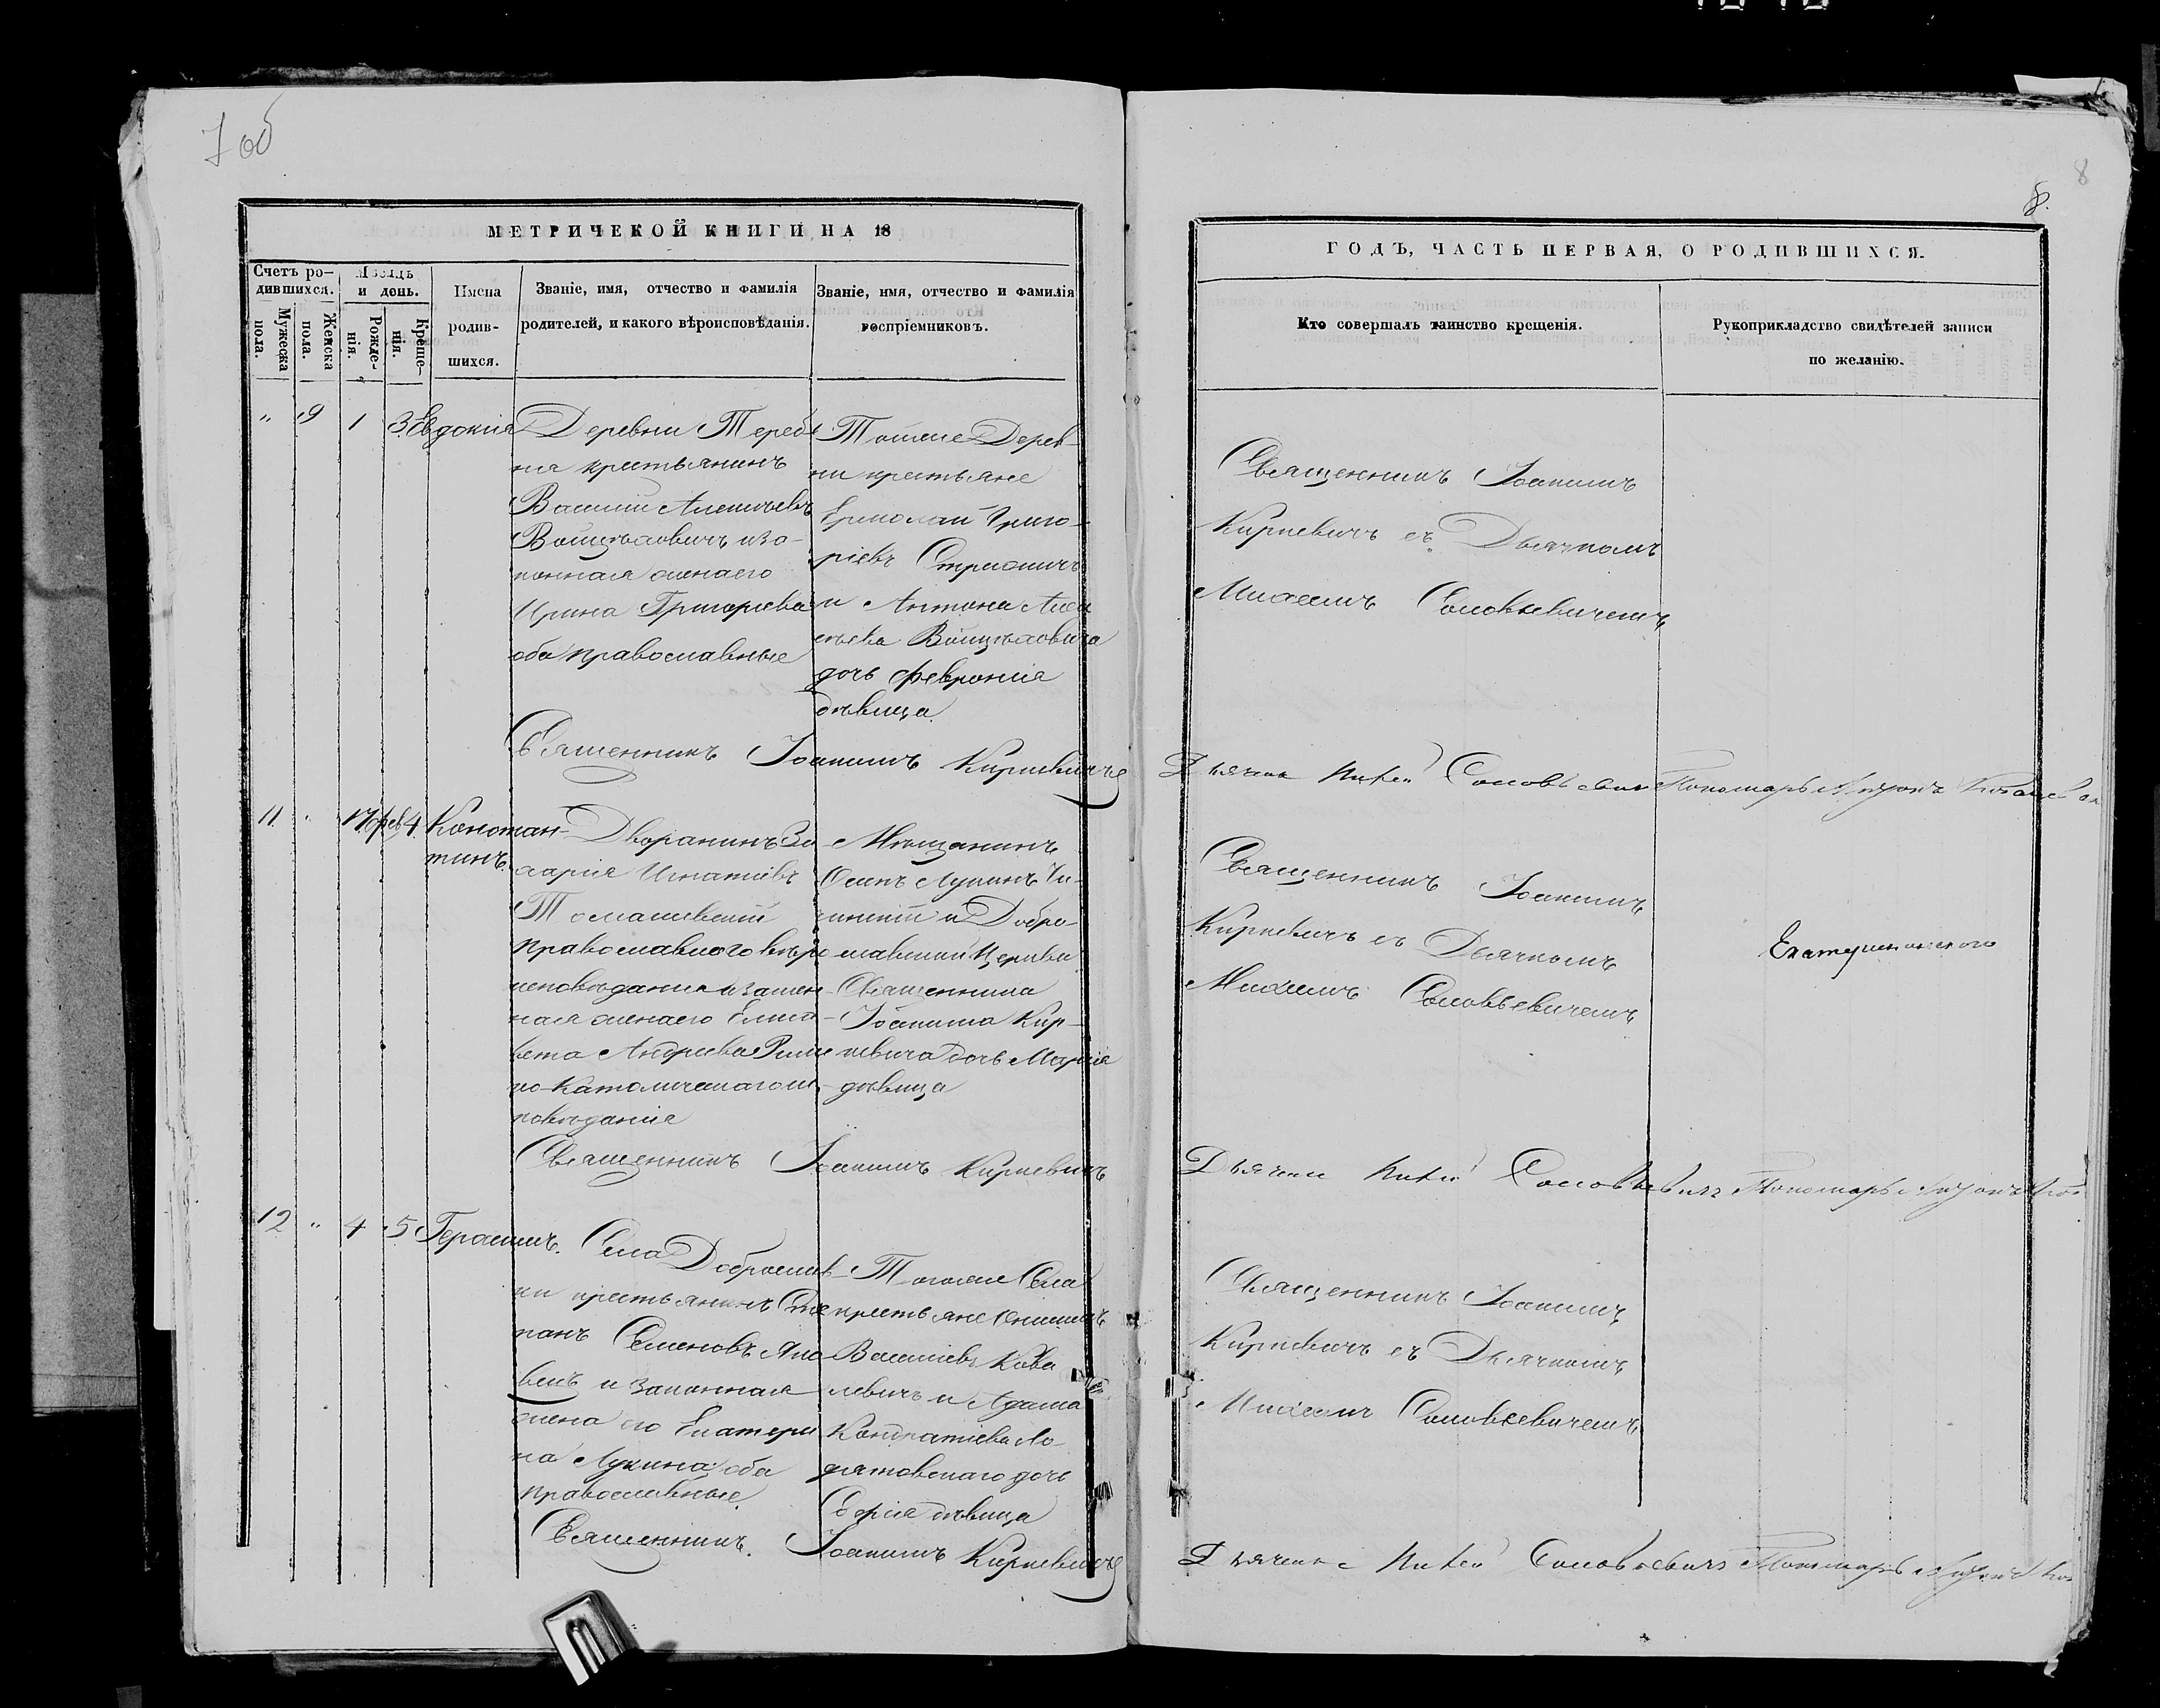 7 об
8
8.
МЕТРИЧЕКОЙ КНИГИ НА 18
Счетъ ро-
дившихся.
Мѣсяцъ
и день.
Мужеска
пола.
Женска
пола.
Рожде-
нія.
Креще-
нія.
Имена
родив-
шихся.
Званіе, имя, отчество и фамилія
родителей, и какого вѣроисповѣданія.
Званіе, имя, отчество и фамилія
воспріемниковъ.
ГОДЪ, ЧАСТЬ ПЕРВАЯ, О РОДИВШИХСЯ.
Кто совершалъ таинство крещенія.
Рукоприкладство свидѣтелей записи
по желанію.
" 9 1 3 Евдокия
Деревни Тереб
ня крестьянинъ
Василій Алексѣевъ
Войцѣховичъ и за-
конная жена его
Ирина Григориева
оба православные
Тойже Дерев-
ни крестьяне
Ермолай Григо-
ріевъ
и Антона Алек
сѣева Войцѣховича
дочь Феврония
дѣвица
Священникъ Іоакимъ
Киркевичъ съ Дьячкомъ
Михеемъ Соловьевичемъ
Священникъ Іоакимъ Киркевичъ
Дьячекъ Михей Соловьевичъ Пономарь
11 " 17 фев 4 Констан-
тинъ
Дворанинъ За
харія Игнатіевъ
Томашевскій
православного вѣро
исповѣдания и закон-
ная жена его Елиса-
вета Андреева Римс
ко-Католическаго ис-
повѣданія
Мѣщанинъ
Осипъ Лукинъ
и Добро-
славской Церкви
Священника
Іоакима Кир-
кевича дочь Мария
дѣвица
Священникъ Іоакимъ
Киркевичъ съ Дьячкомъ
Михеемъ Соловьевичемъ
Священникъ Іоакимъ Киркевичъ
Дьячекъ Михей Соловьевичъ Пономарь
12 " 4 5 Герасимъ.
Села Доброслав-
ки крестьянинъ Сте
панъ Семеновъ Яко
вецъ и законная
жена его Екатери
на Лукина оба
православные.
Тогоже Села
крестьяне Онисимъ
Василіевъ Кова
левичъ и Адама
Кондратіева Ло-
дятовскаго дочь
Софія дѣвица
Священникъ Іоакимъ
Киркевичъ съ Дьячкомъ
Михеемъ Соловьевичемъ
Священникъ Іоакимъ Киркевичъ
Дьячекъ Михей Соловьевичъ Пономарь